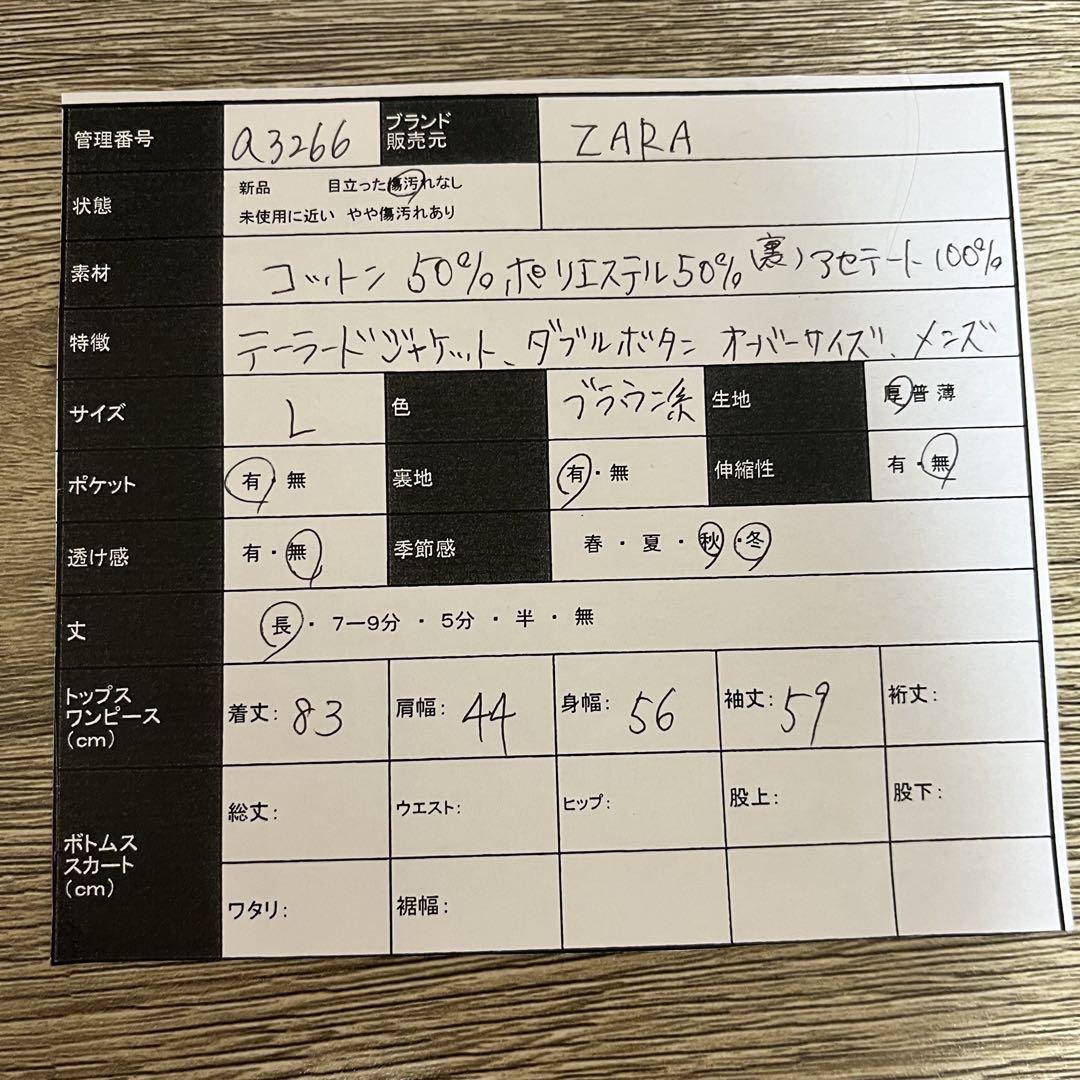 管理番号 a3266 ブランド販売元 ZARA
状態 新品 目立った傷汚れなし
未使用に近い やや傷汚れあり
素材 コットン 50% ポリエステル50% (裏)アセテート100%
特徴 テーラードジャケット、ダブルボタン オーバーサイズ、メンズ
サイズ L 色 ブラウン系 生地 厚普薄
ポケット 有・無 裏地 有・無 伸縮性 有・無
透け感 有・無 季節感 春・夏・秋・冬
丈 長・7ー9分・5分・半・無
トップス
ワンピース
(cm)
着丈: 83 肩幅: 44 身幅: 56 袖丈: 59 裄丈:
ボトムス
スカート
(cm)
総丈: ウエスト: ヒップ: 股上: 股下:
ワタリ: 裾幅: